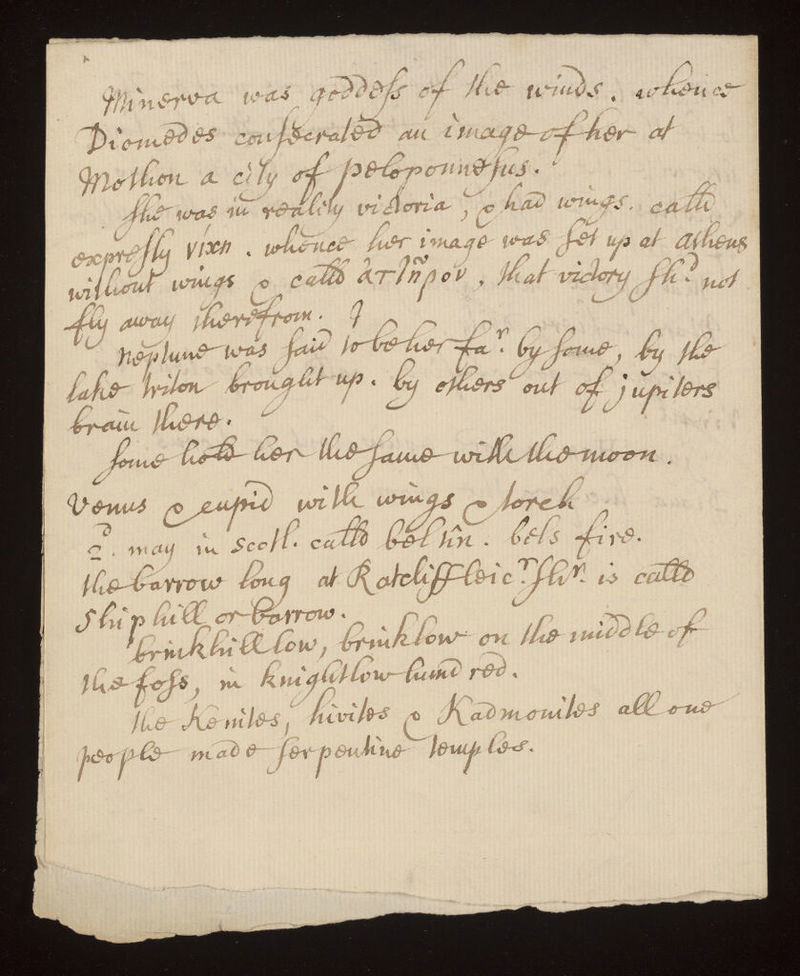 Minerva was goddess of the winds. whence
Diomedes consecrated an image of her at
Mothon a city of peloponnesus.
she was in reality victoria, & had wings. calld
expressly νίκη. whence her image was set up at athens
without wings & calld ἄπτηρον, that victory shd. not
fly away therefrom.
Neptune was said to be her far. by some, by the
lake triton brought up. by others out of jupiters
brain there.
some hold her the same with the moon.
Venus & cupid with wings & torch
2d. may in scotl. calld beltîn. bels fire.
the barrow long at Ratcliff leicr. shr. is calld
Shiphill or barrow.
brinkhill low, brinklow on the middle of
the foss, in knightlow hundred.
the Kenites, hivites & Kadmonites all one
people made serpentine temples.